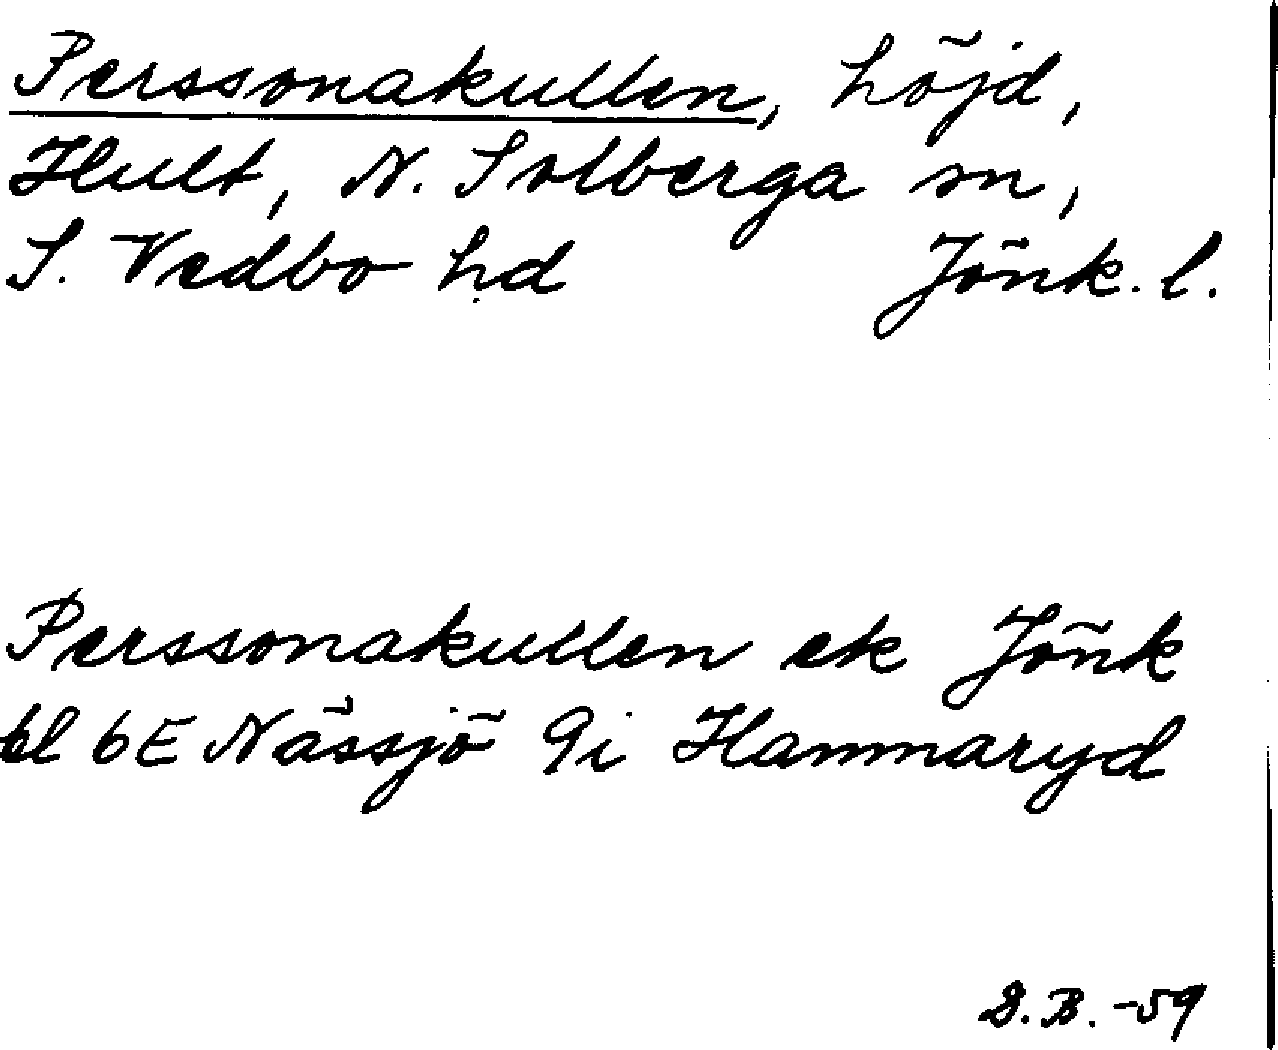 Perssonakullen, höjd,
Hult, N. Solberga sn,
S. Vedbo hd Jönk. l.
Perssonakullen ek Jönk
bl 6E Nässjö 9i Hammaryd
S.B. -59